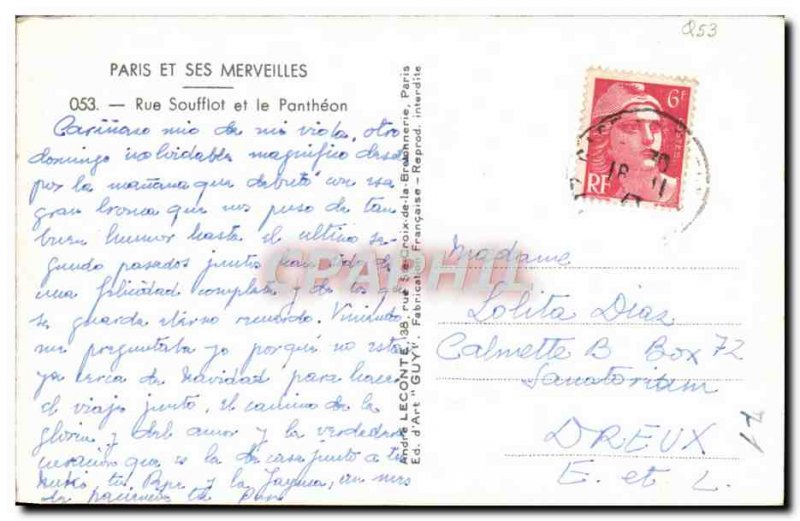 Q53
PARIS ET SES MERVEILLES
053. — Rue Soufflot et le Panthéon
Cariñoso mio de mi vida, otro
domingo inolvidable magnifico desde
por la mañana que debutó con esa
gran bronca que nos puso de tan
buen humor hasta el ultimo se-
gundo pasados juntos
una felicidad completa y de
se guarda eterno recuerdo. Viniendo
me preguntaba yo porqué no esta
ya cerca de Navidad para hacer
el viaje junto, el camino de la
gloria y del amor y la verdadera
que es la de casa junto a tu
tu Pepe y la
de
André LECONTE, 38, rue Ste-Croix-de-la-Bretonnerie, Paris
Ed. d'Art "GUY". Fabrication Française - Reprod. interdite
CPARPHIL
6F
RF
18
11
Madame
Lolita Diaz
Calmette B Box 72
Sanatorium
DREUX
E. et L.